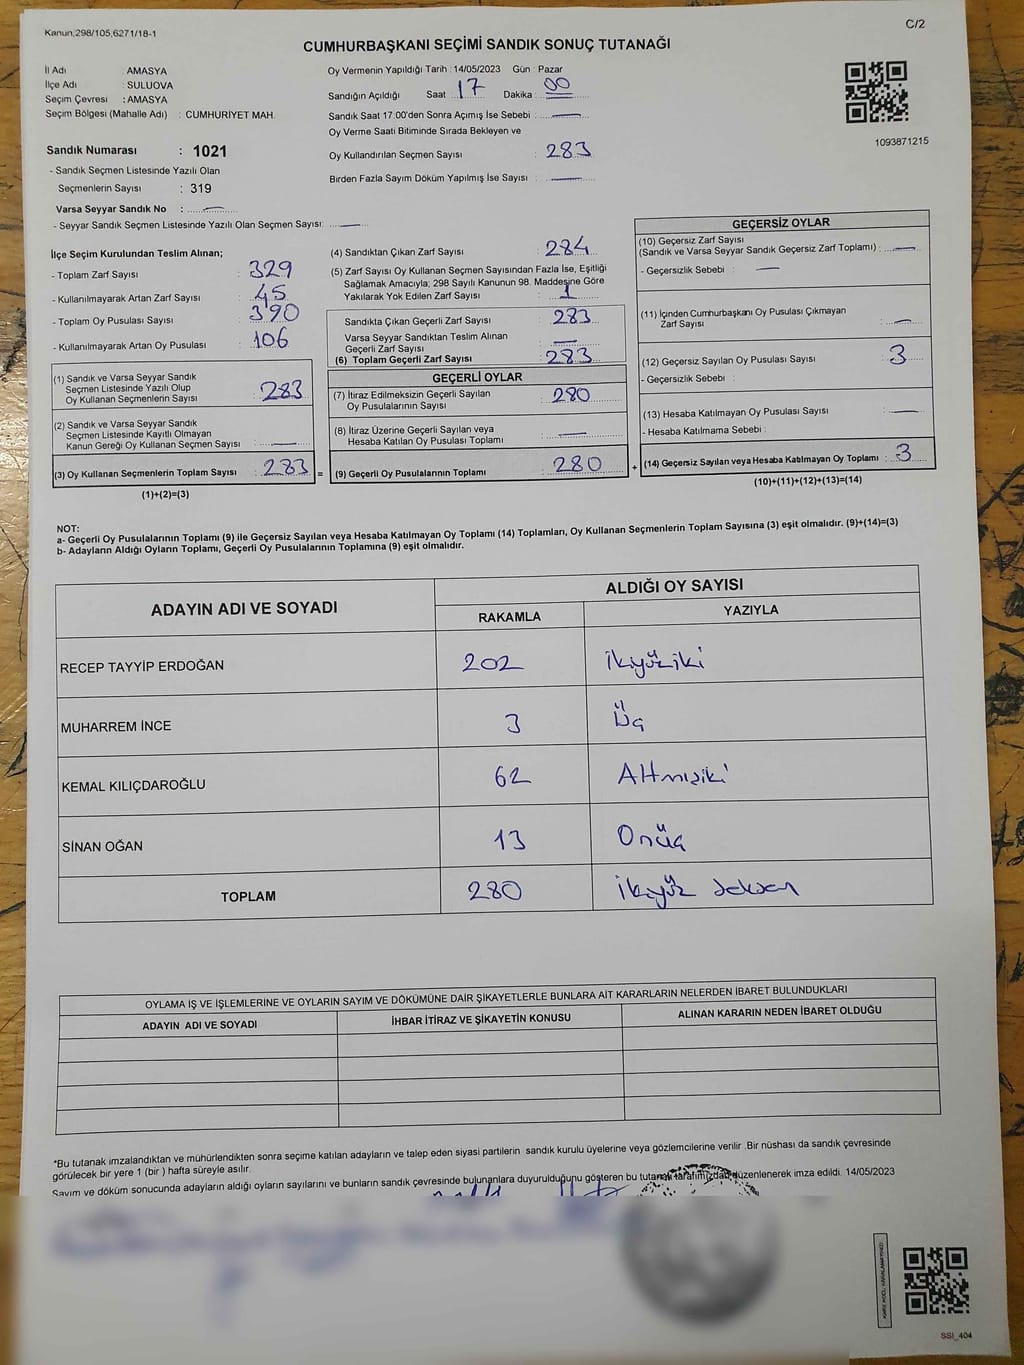 Kanun,298/105,6271/18-1
C/2
CUMHURBAŞKANI SEÇİMİ SANDIK SONUÇ TUTANAĞI
İl Adı : AMASYA
İlçe Adı : SULUOVA
Seçim Çevresi : AMASYA
Seçim Bölgesi (Mahalle Adı) : CUMHURİYET MAH.
Sandık Numarası : 1021
- Sandık Seçmen Listesinde Yazılı Olan
Seçmenlerin Sayısı : 319
Varsa Seyyar Sandık No :
- Seyyar Sandık Seçmen Listesinde Yazılı Olan Seçmen Sayısı:
Oy Vermenin Yapıldığı Tarih : 14/05/2023 Gün : Pazar
Sandığın Açıldığı Saat : 17 Dakika : 00
Sandık Saat 17.00'den Sonra Açımış İse Sebebi :
Oy Verme Saati Bitiminde Sırada Bekleyen ve
Oy Kullandırılan Seçmen Sayısı : 283
Birden Fazla Sayım Döküm Yapılmış İse Sayısı :
1093871215
İlçe Seçim Kurulundan Teslim Alınan;
- Toplam Zarf Sayısı : 329
- Kullanılmayarak Artan Zarf Sayısı : 45
- Toplam Oy Pusulası Sayısı : 390
- Kullanılmayarak Artan Oy Pusulası : 106
(1) Sandık ve Varsa Seyyar Sandık
Seçmen Listesinde Yazılı Olup
Oy Kullanan Seçmenlerin Sayısı : 283
(2) Sandık ve Varsa Seyyar Sandık
Seçmen Listesinde Kayıtlı Olmayan
Kanun Gereği Oy Kullanan Seçmen Sayısı :
(3) Oy Kullanan Seçmenlerin Toplam Sayısı : 283 =
(1)+(2)=(3)
(4) Sandıktan Çıkan Zarf Sayısı : 284
(5) Zarf Sayısı Oy Kullanan Seçmen Sayısından Fazla İse, Eşitliği
Sağlamak Amacıyla; 298 Sayılı Kanunun 98. Maddesine Göre
Yakılarak Yok Edilen Zarf Sayısı : 1
Sandıkta Çıkan Geçerli Zarf Sayısı : 283
Varsa Seyyar Sandıktan Teslim Alınan
Geçerli Zarf Sayısı :
(6) Toplam Geçerli Zarf Sayısı : 283
GEÇERLİ OYLAR
(7) İtiraz Edilmeksizin Geçerli Sayılan
Oy Pusulalarının Sayısı : 280
(8) İtiraz Üzerine Geçerli Sayılan veya
Hesaba Katılan Oy Pusulası Toplamı :
(9) Geçerli Oy Pusulalarının Toplamı : 280 +
GEÇERSİZ OYLAR
(10) Geçersiz Zarf Sayısı
(Sandık ve Varsa Seyyar Sandık Geçersiz Zarf Toplamı) :
- Geçersizlik Sebebi :
(11) İçinden Cumhurbaşkanı Oy Pusulası Çıkmayan
Zarf Sayısı :
(12) Geçersiz Sayılan Oy Pusulası Sayısı : 3
- Geçersizlik Sebebi :
(13) Hesaba Katılmayan Oy Pusulası Sayısı :
- Hesaba Katılmama Sebebi :
(14) Geçersiz Sayılan veya Hesaba Katılmayan Oy Toplamı : 3
(10)+(11)+(12)+(13)=(14)
NOT:
a- Geçerli Oy Pusulalarının Toplamı (9) ile Geçersiz Sayılan veya Hesaba Katılmayan Oy Toplamı (14) Toplamları, Oy Kullanan Seçmenlerin Toplam Sayısına (3) eşit olmalıdır. (9)+(14)=(3)
b- Adayların Aldığı Oyların Toplamı, Geçerli Oy Pusulalarının Toplamına (9) eşit olmalıdır.
ADAYIN ADI VE SOYADI ALDIĞI OY SAYISI
RAKAMLA YAZIYLA
RECEP TAYYİP ERDOĞAN 202 İkiyüziki
MUHARREM İNCE 3 Üç
KEMAL KILIÇDAROĞLU 62 Altmışiki
SİNAN OĞAN 13 Onüç
TOPLAM 280 İkiyüz seksen
OYLAMA İŞ VE İŞLEMLERİNE VE OYLARIN SAYIM VE DÖKÜMÜNE DAİR ŞİKAYETLERLE BUNLARA AİT KARARLARIN NELERDEN İBARET BULUNDUKLARI
ADAYIN ADI VE SOYADI İHBAR İTİRAZ VE ŞİKAYETİN KONUSU ALINAN KARARIN NEDEN İBARET OLDUĞU
*Bu tutanak imzalandıktan ve mühürlendikten sonra seçime katılan adayların ve talep eden siyasi partilerin sandık kurulu üyelerine veya gözlemcilerine verilir .Bir nüshası da sandık çevresinde
görülecek bir yere 1 (bir ) hafta süreyle asılır.
Sayım ve döküm sonucunda adayların aldığı oyların sayılarını ve bunların sandık çevresinde bulunanlara duyurulduğunu gösteren bu tutanak tarafımızdan düzenlenerek imza edildi. 14/05/2023
SSI_404